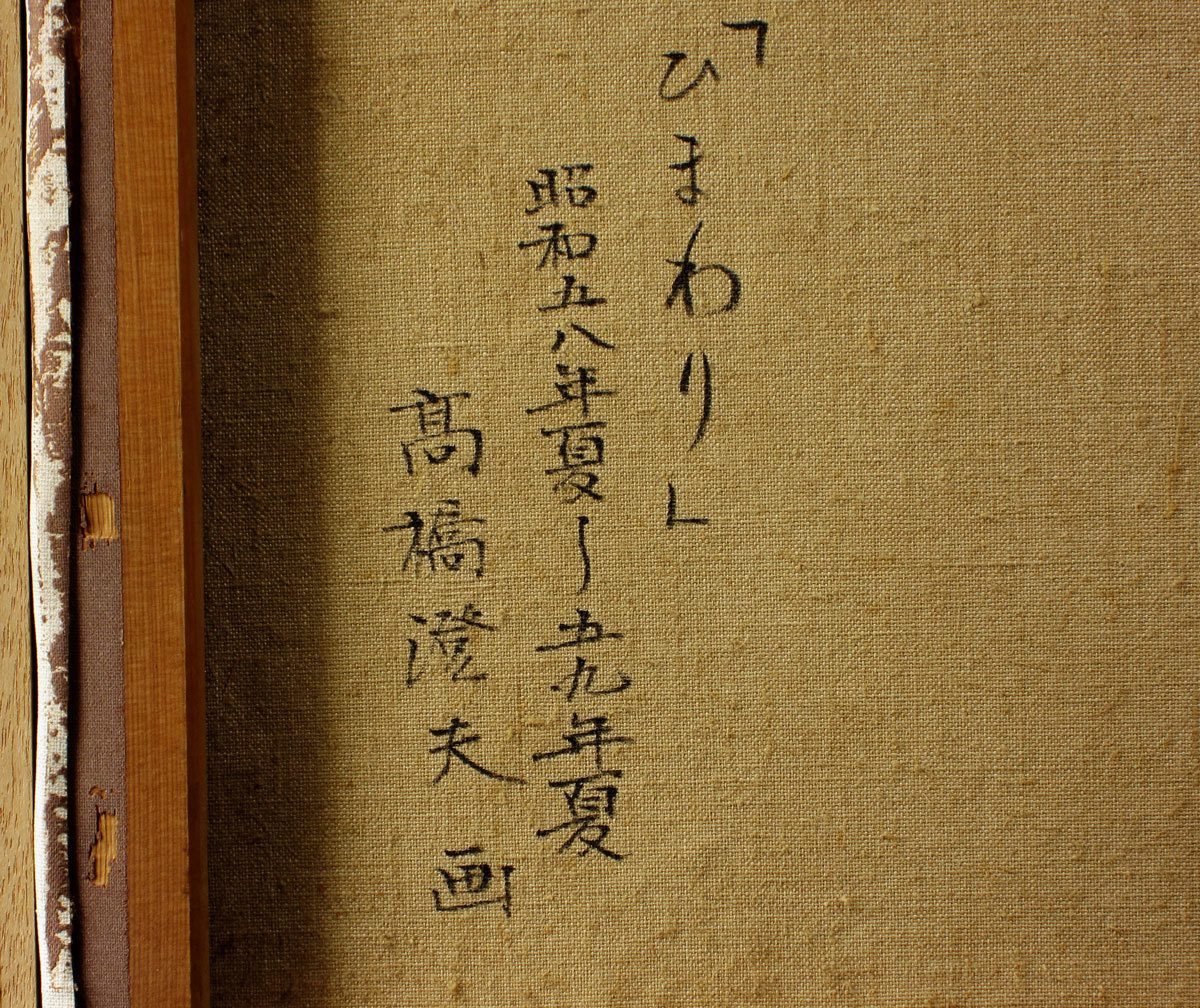 「ひまわり」
昭和五八年夏〜五九年夏
髙橋澄夫 画